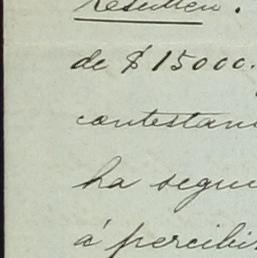 Resulten.
de $15000.
contestan
ha segui
á percibi